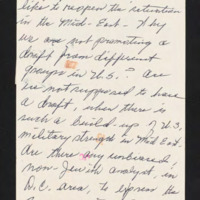 like to reopen the situation
in the Mid-East. Why
are we not promoting a
draft from different
groups in U.S.? Are
we not supposed to have
a draft, when there is
such a build-up of U.S.
military strength in Mid East.
Are there any unbiased,
non-Jewish analyst, in
D.C. area, to express the